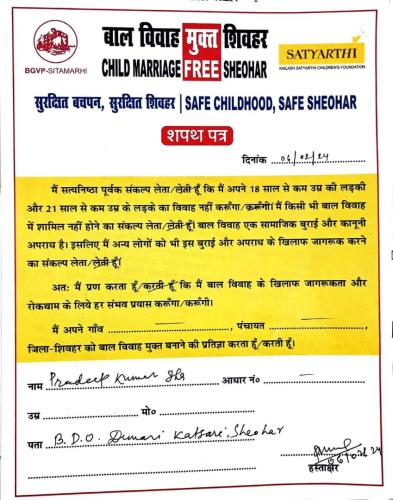 बाल विवाह मुक्त शिवहर
CHILD MARRIAGE FREE SHEOHAR
BGVP-SITAMARHI
SATYARTHI
KAILASH SATYARTHI CHILDREN'S FOUNDATION
सुरक्षित बचपन, सुरक्षित शिवहर | SAFE CHILDHOOD, SAFE SHEOHAR
शपथ पत्र
दिनांक 06/02/24
मैं सत्यनिष्ठा पूर्वक संकल्प लेता/लेती हूँ कि मैं अपने 18 साल से कम उम्र की लड़की
और 21 साल से कम उम्र के लड़के का विवाह नहीं करूँगा/करूँगी। मैं किसी भी बाल विवाह
में शामिल नहीं होने का संकल्प लेता/लेती हूँ। बाल विवाह एक सामाजिक बुराई और कानूनी
अपराध है। इसलिए मैं अन्य लोगों को भी इस बुराई और अपराध के खिलाफ जागरूक करने
का संकल्प लेता/लेती हूँ।
अतः मैं प्रण करता हूँ/करती हूँ कि मैं बाल विवाह के खिलाफ जागरूकता और
रोकथाम के लिये हर संभव प्रयास करूँगा/करूँगी।
मैं अपने गाँव ........ पंचायत ........,
जिला-शिवहर को बाल विवाह मुक्त बनाने की प्रतिज्ञा करता हूँ/करती हूँ।
नाम Pradeep Kumar Jha आधार नं० —
उम्र ........ मो० ........
पता B.D.O. Dumari Katsari, Sheohar
06/02/24
हस्ताक्षर